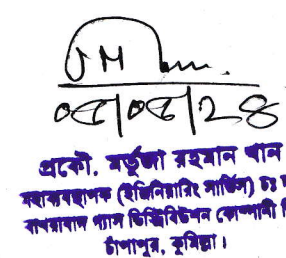 ০৫/০৫/২৪
প্রকৌ. মর্তুজা রহমান খান
মহাব্যবস্থাপক (ইঞ্জিনিয়ারিং সার্ভিস) চঃ
বাখরাবাদ গ্যাস ডিস্ট্রিবিউশন কোম্পানী লি
চাঁপাপুর, কুমিল্লা।